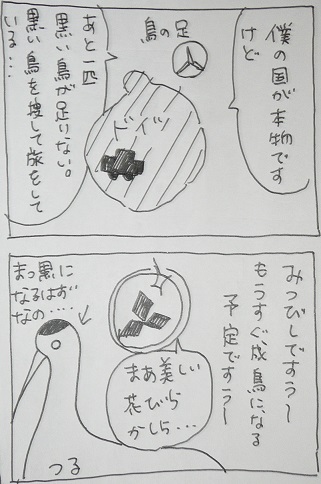 僕の国が本物です
けど
鳥の足
ドイツ
あと一匹
黒い鳥が足りない。
黒い鳥を捜して旅をして
いる…
みつびしですぅ〜
もうすぐ、成鳥になる
予定ですぅ〜
まっ黒に
なるはず
なの....
まあ美しい
花びら
かしら…
つる